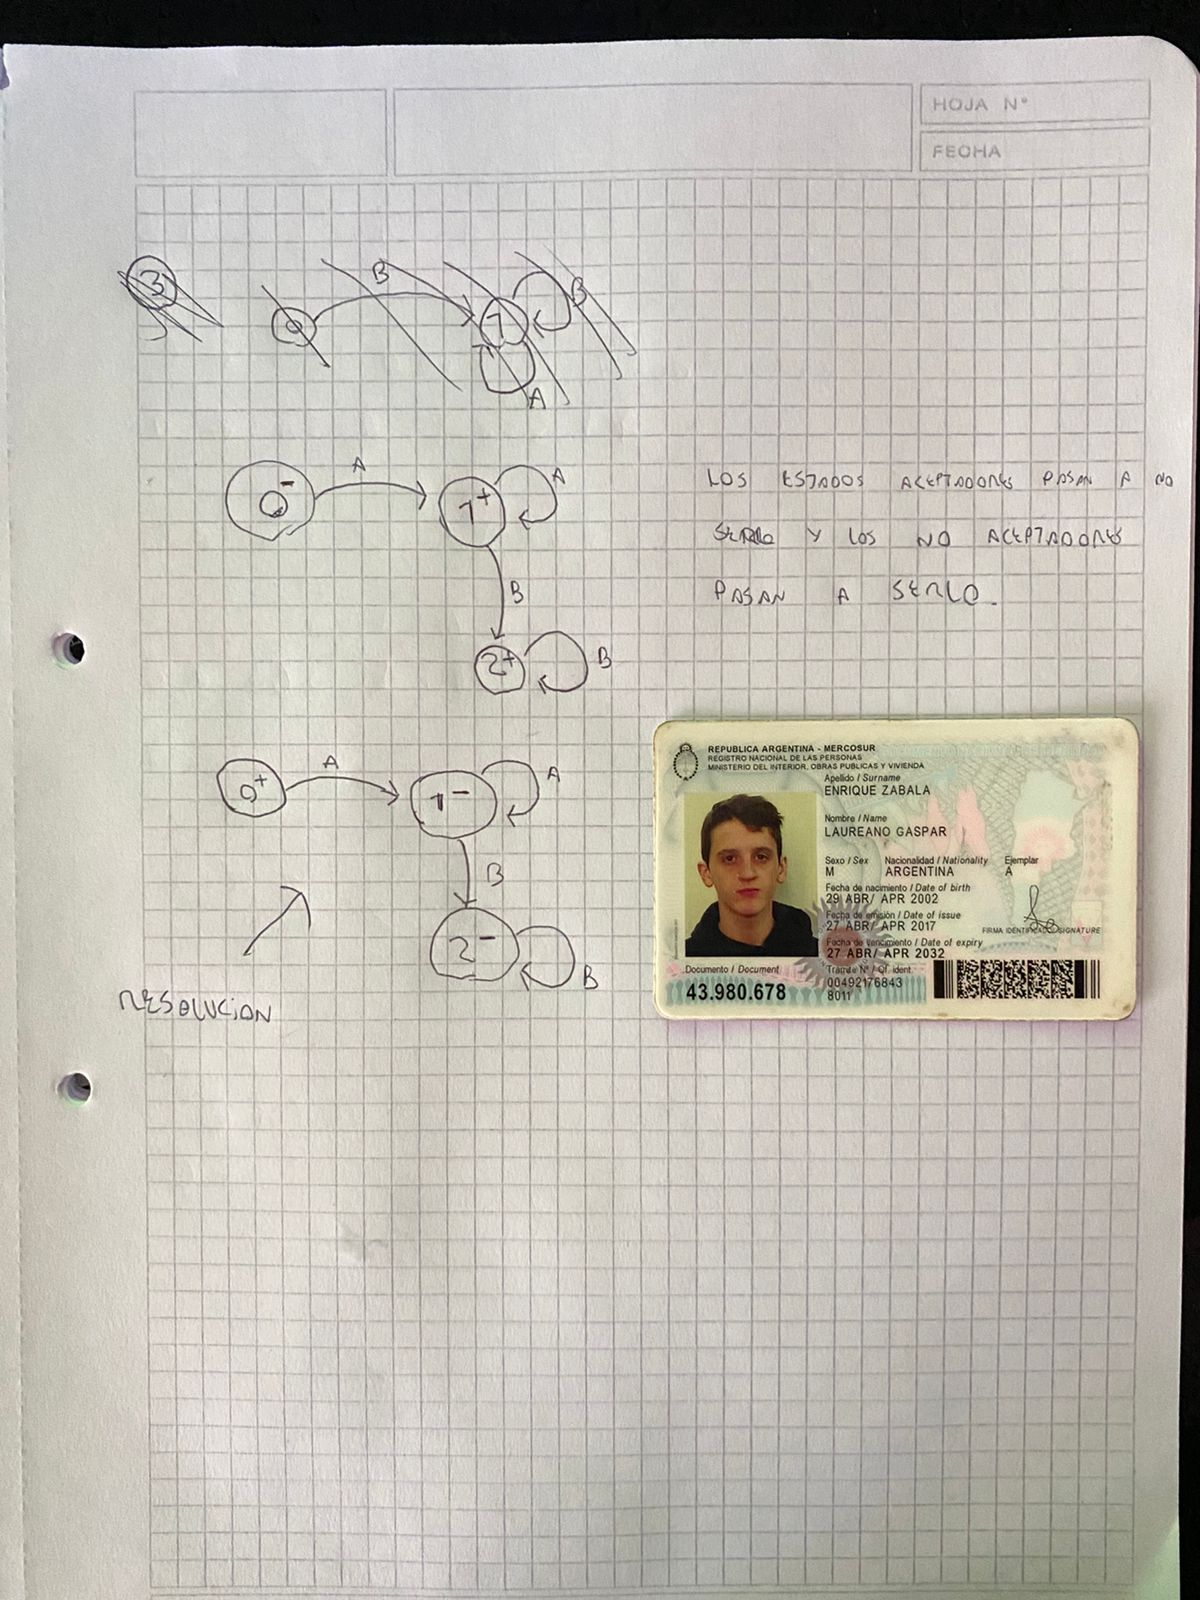 HOJA N°
FECHA
3
B
0
1
B
A
0-
A
1+
A
B
2+
B
LOS ESTADOS ACEPTADORES PASAN A NO
SERLO Y LOS NO ACEPTADORES
PASAN A SERLO.
0+
A
1-
A
B
2-
B
RESOLUCION
REPUBLICA ARGENTINA - MERCOSUR
REGISTRO NACIONAL DE LAS PERSONAS
MINISTERIO DEL INTERIOR, OBRAS PUBLICAS Y VIVIENDA
Apellido / Surname
ENRIQUE ZABALA
Nombre / Name
LAUREANO GASPAR
Sexo / Sex Nacionalidad / Nationality Ejemplar
M ARGENTINA A
Fecha de nacimiento / Date of birth
29 ABR/ APR 2002
Fecha de emisión / Date of issue
27 ABR/ APR 2017
FIRMA IDENTIFICADO / SIGNATURE
Fecha de vencimiento / Date of expiry
27 ABR/ APR 2032
Documento / Document
43.980.678
Trámite N° / Of. ident.
00492176843
8011